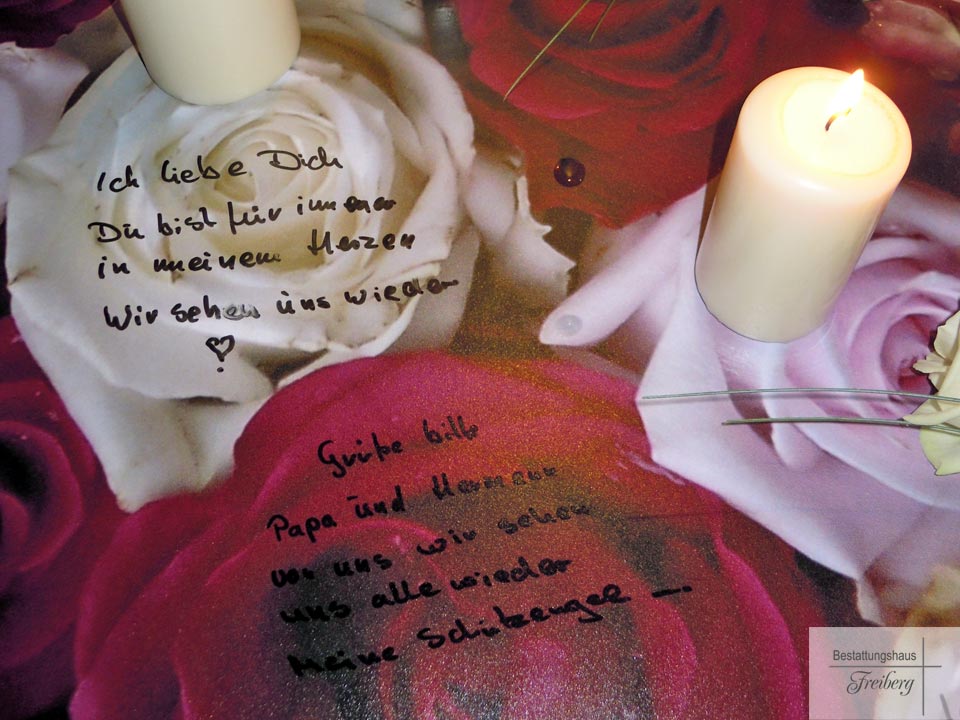 Ich liebe Dich
Du bist für immer
in meinem Herzen
Wir sehen uns wieder
♡
Grüße bitte
Papa und
von uns wir sehen
uns alle wieder
Meine Schutzengel —.
Bestattungshaus
Freiberg